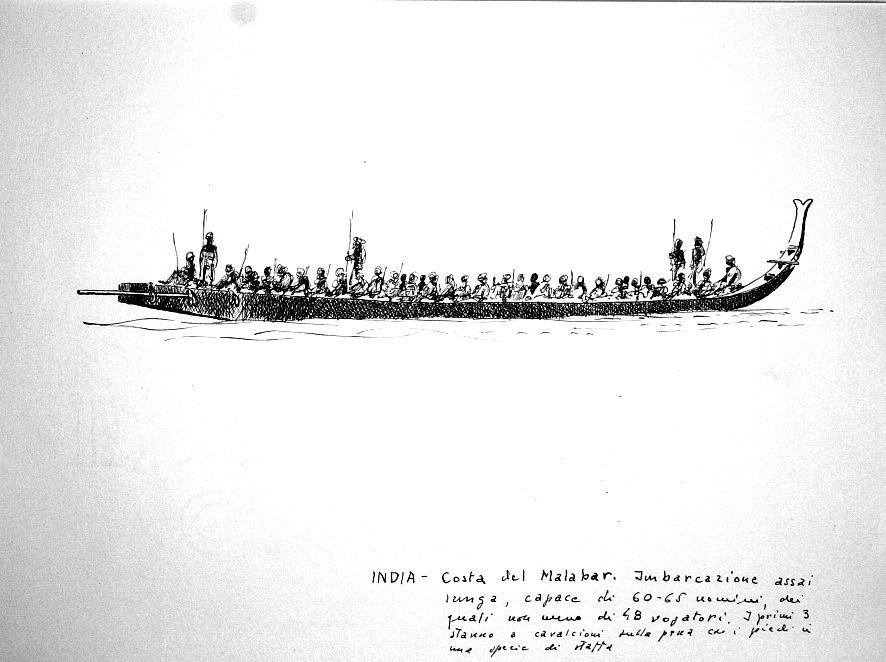 INDIA - Costa del Malabar. Imbarcazione assai
lunga, capace di 60-65 uomini, dei
quali non meno di 48 vogatori. I primi 3
stanno a cavalcioni sulla prua con i piedi in
una specie di staffa